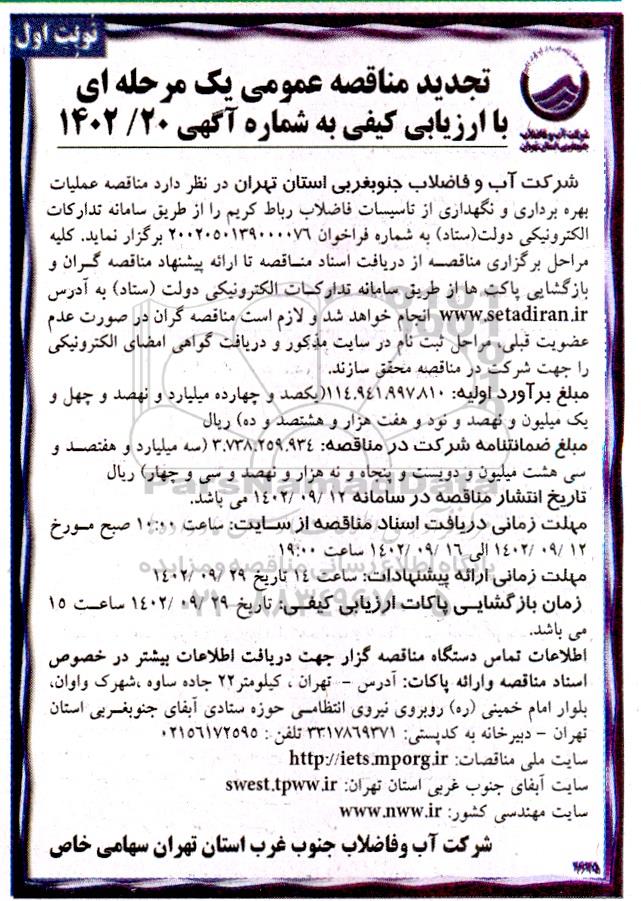 نوبت اول
تجدید مناقصه عمومی یک مرحله ای
با ارزیابی کیفی به شماره آگهی ۲۰/ ۱۴۰۲
شرکت آب و فاضلاب
جنوبغربی استان تهران
شرکت آب و فاضلاب جنوبغربی استان تهران در نظر دارد مناقصه عملیات
بهره برداری و نگهداری از تاسیسات فاضلاب رباط کریم را از طریق سامانه تدارکات
الکترونیکی دولت(ستاد) به شماره فراخوان ۲۰۰۲۰۵۰۱۳۹۰۰۰۰۷۶ برگزار نماید. کلیه
مراحل برگزاری مناقصه از دریافت اسناد مناقصه تا ارائه پیشنهاد مناقصه گران و
بازگشایی پاکت ها از طریق سامانه تدارکات الکترونیکی دولت (ستاد) به آدرس
www.setadiran.ir انجام خواهد شد و لازم است مناقصه گران در صورت عدم
عضویت قبلی، مراحل ثبت نام در سایت مذکور و دریافت گواهی امضای الکترونیکی
را جهت شرکت در مناقصه محقق سازند.
مبلغ برآورد اولیه: ۱۱۴.۹۴۱.۹۹۷.۸۱۰(یکصد و چهارده میلیارد و نهصد و چهل و
یک میلیون و نهصد و نود و هفت هزار و هشتصد و ده) ریال
مبلغ ضمانتنامه شرکت در مناقصه: ۳.۷۳۸.۲۵۹.۹۳۴ (سه میلیارد و هفتصد و
سی هشت میلیون و دویست و پنجاه و نه هزار و نهصد و سی و چهار) ریال
تاریخ انتشار مناقصه در سامانه ۱۲ /۰۹ /۱۴۰۲ می باشد.
مهلت زمانی دریافت اسناد مناقصه از سایت: ساعت ۱۰:۰۰ صبح مورخ
۱۲ /۰۹ /۱۴۰۲ الی ۱۶ /۰۹ /۱۴۰۲ ساعت ۱۹:۰۰
مهلت زمانی ارائه پیشنهادات: ساعت ۱۴ تاریخ ۲۹ /۰۹ /۱۴۰۲
زمان بازگشایی پاکات ارزیابی کیفی: تاریخ ۲۹ /۰۹ /۱۴۰۲ ساعت ۱۵
می باشد.
اطلاعات تماس دستگاه مناقصه گزار جهت دریافت اطلاعات بیشتر در خصوص
اسناد مناقصه وارائه پاکات: آدرس - تهران ، کیلومتر۲۲ جاده ساوه ،شهرک واوان،
بلوار امام خمینی (ره) روبروی نیروی انتظامی حوزه ستادی آبفای جنوبغربی استان
تهران - دبیرخانه به کدپستی: ۳۳۱۷۸۶۹۳۷۱ تلفن : ۰۲۱۵۶۱۷۲۵۹۵
سایت ملی مناقصات: http://iets.mporg.ir
سایت آبفای جنوب غربی استان تهران: swest.tpww.ir
سایت مهندسی کشور: www.nww.ir
شرکت آب وفاضلاب جنوب غرب استان تهران سهامی خاص
ParsNamadData
پایگاه اطلاع رسانی مناقصه و مزایده